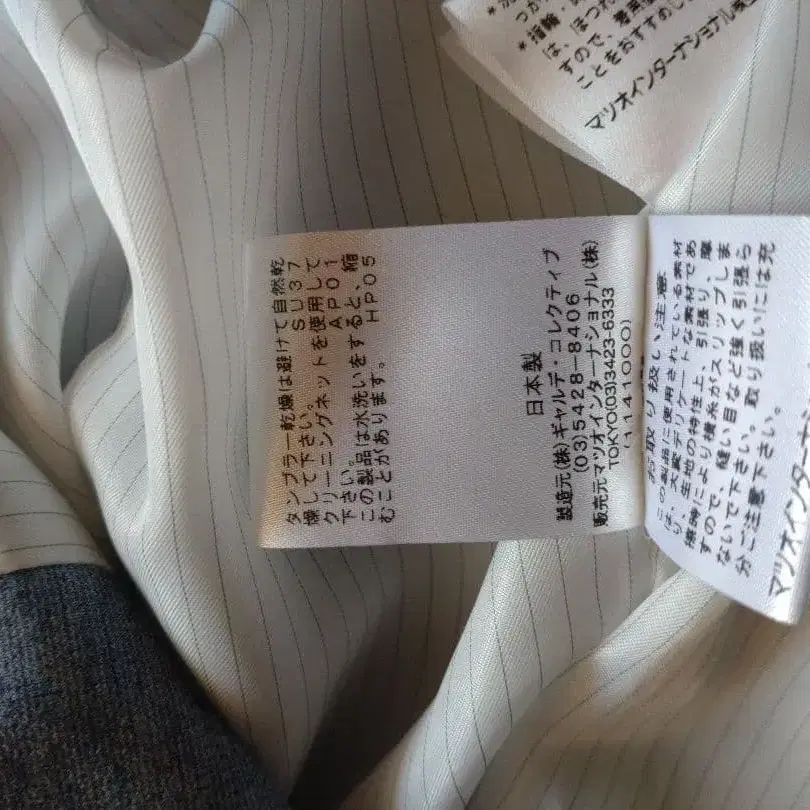 タンブラー乾燥は避けて自然乾
燥して下さい。 SU37
クリーニングネットを使用して
下さい。 AP01
この製品は水洗いをすると、縮
むことがあります。 HP05
日本製
製造元(株)ギャルデ・コレクティブ
(03)5428-8406
販売元マツオインターナショナル(株)
TOKYO(03)3423-6333
(1141000)
お取り扱い注意
この製品に使用されている素材
は、大変デリケートな素材であ
り、生地の特性上、引張り、摩
擦等により横糸がスリップしま
すので、縫い目など強く引張ら
ないで下さい。取り扱いには充
分ご注意下さい。
マツオインターナ
つか
*指輪・
は、ほつれ
すので、着用
ことをおすすめし
マツオインターナショナル株